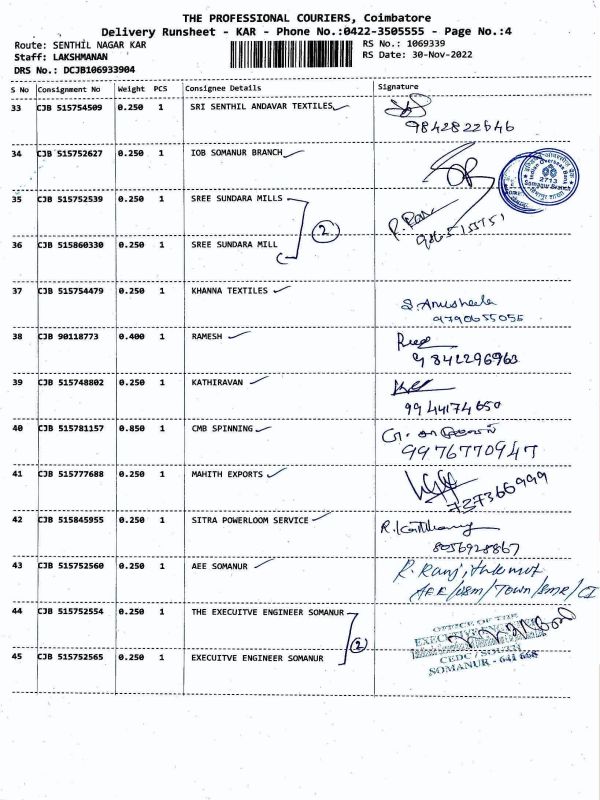 THE PROFESSIONAL COURIERS, Coimbatore
Delivery Runsheet - KAR - Phone No.:0422-3505555 - Page No.:4
Route: SENTHIL NAGAR KAR RS No.: 1069339
Staff: LAKSHMANAN RS Date: 30-Nov-2022
DRS No.: DCJB106933904
S No Consignment No Weight PCS Consignee Details Signature
33 CJB 515754509 0.250 1 SRI SENTHIL ANDAVAR TEXTILES
9842822646
34 CJB 515752627 0.250 1 IOB SOMANUR BRANCH
Indian Overseas Bank
2713
Somanur Branch
35 CJB 515752539 0.250 1 SREE SUNDARA MILLS
2
36 CJB 515860330 0.250 1 SREE SUNDARA MILL
37 CJB 515754479 0.250 1 KHANNA TEXTILES
S. Anusheela
9790655055
38 CJB 90118773 0.400 1 RAMESH
9841296963
39 CJB 515748802 0.250 1 KATHIRAVAN
9944174650
40 CJB 515781157 0.850 1 CMB SPINNING
9976770947
41 CJB 515777688 0.250 1 MAHITH EXPORTS
737366999
42 CJB 515845955 0.250 1 SITRA POWERLOOM SERVICE
8056928867
43 CJB 515752560 0.250 1 AEE SOMANUR
AEE/O&M/Town/SMR/CI
44 CJB 515752554 0.250 1 THE EXECUITVE ENGINEER SOMANUR
OFFICE OF THE
EXECUTIVE ENGINEER
2
CEDC / SOUTH
45 CJB 515752565 0.250 1 EXECUITVE ENGINEER SOMANUR
SOMANUR - 641 668